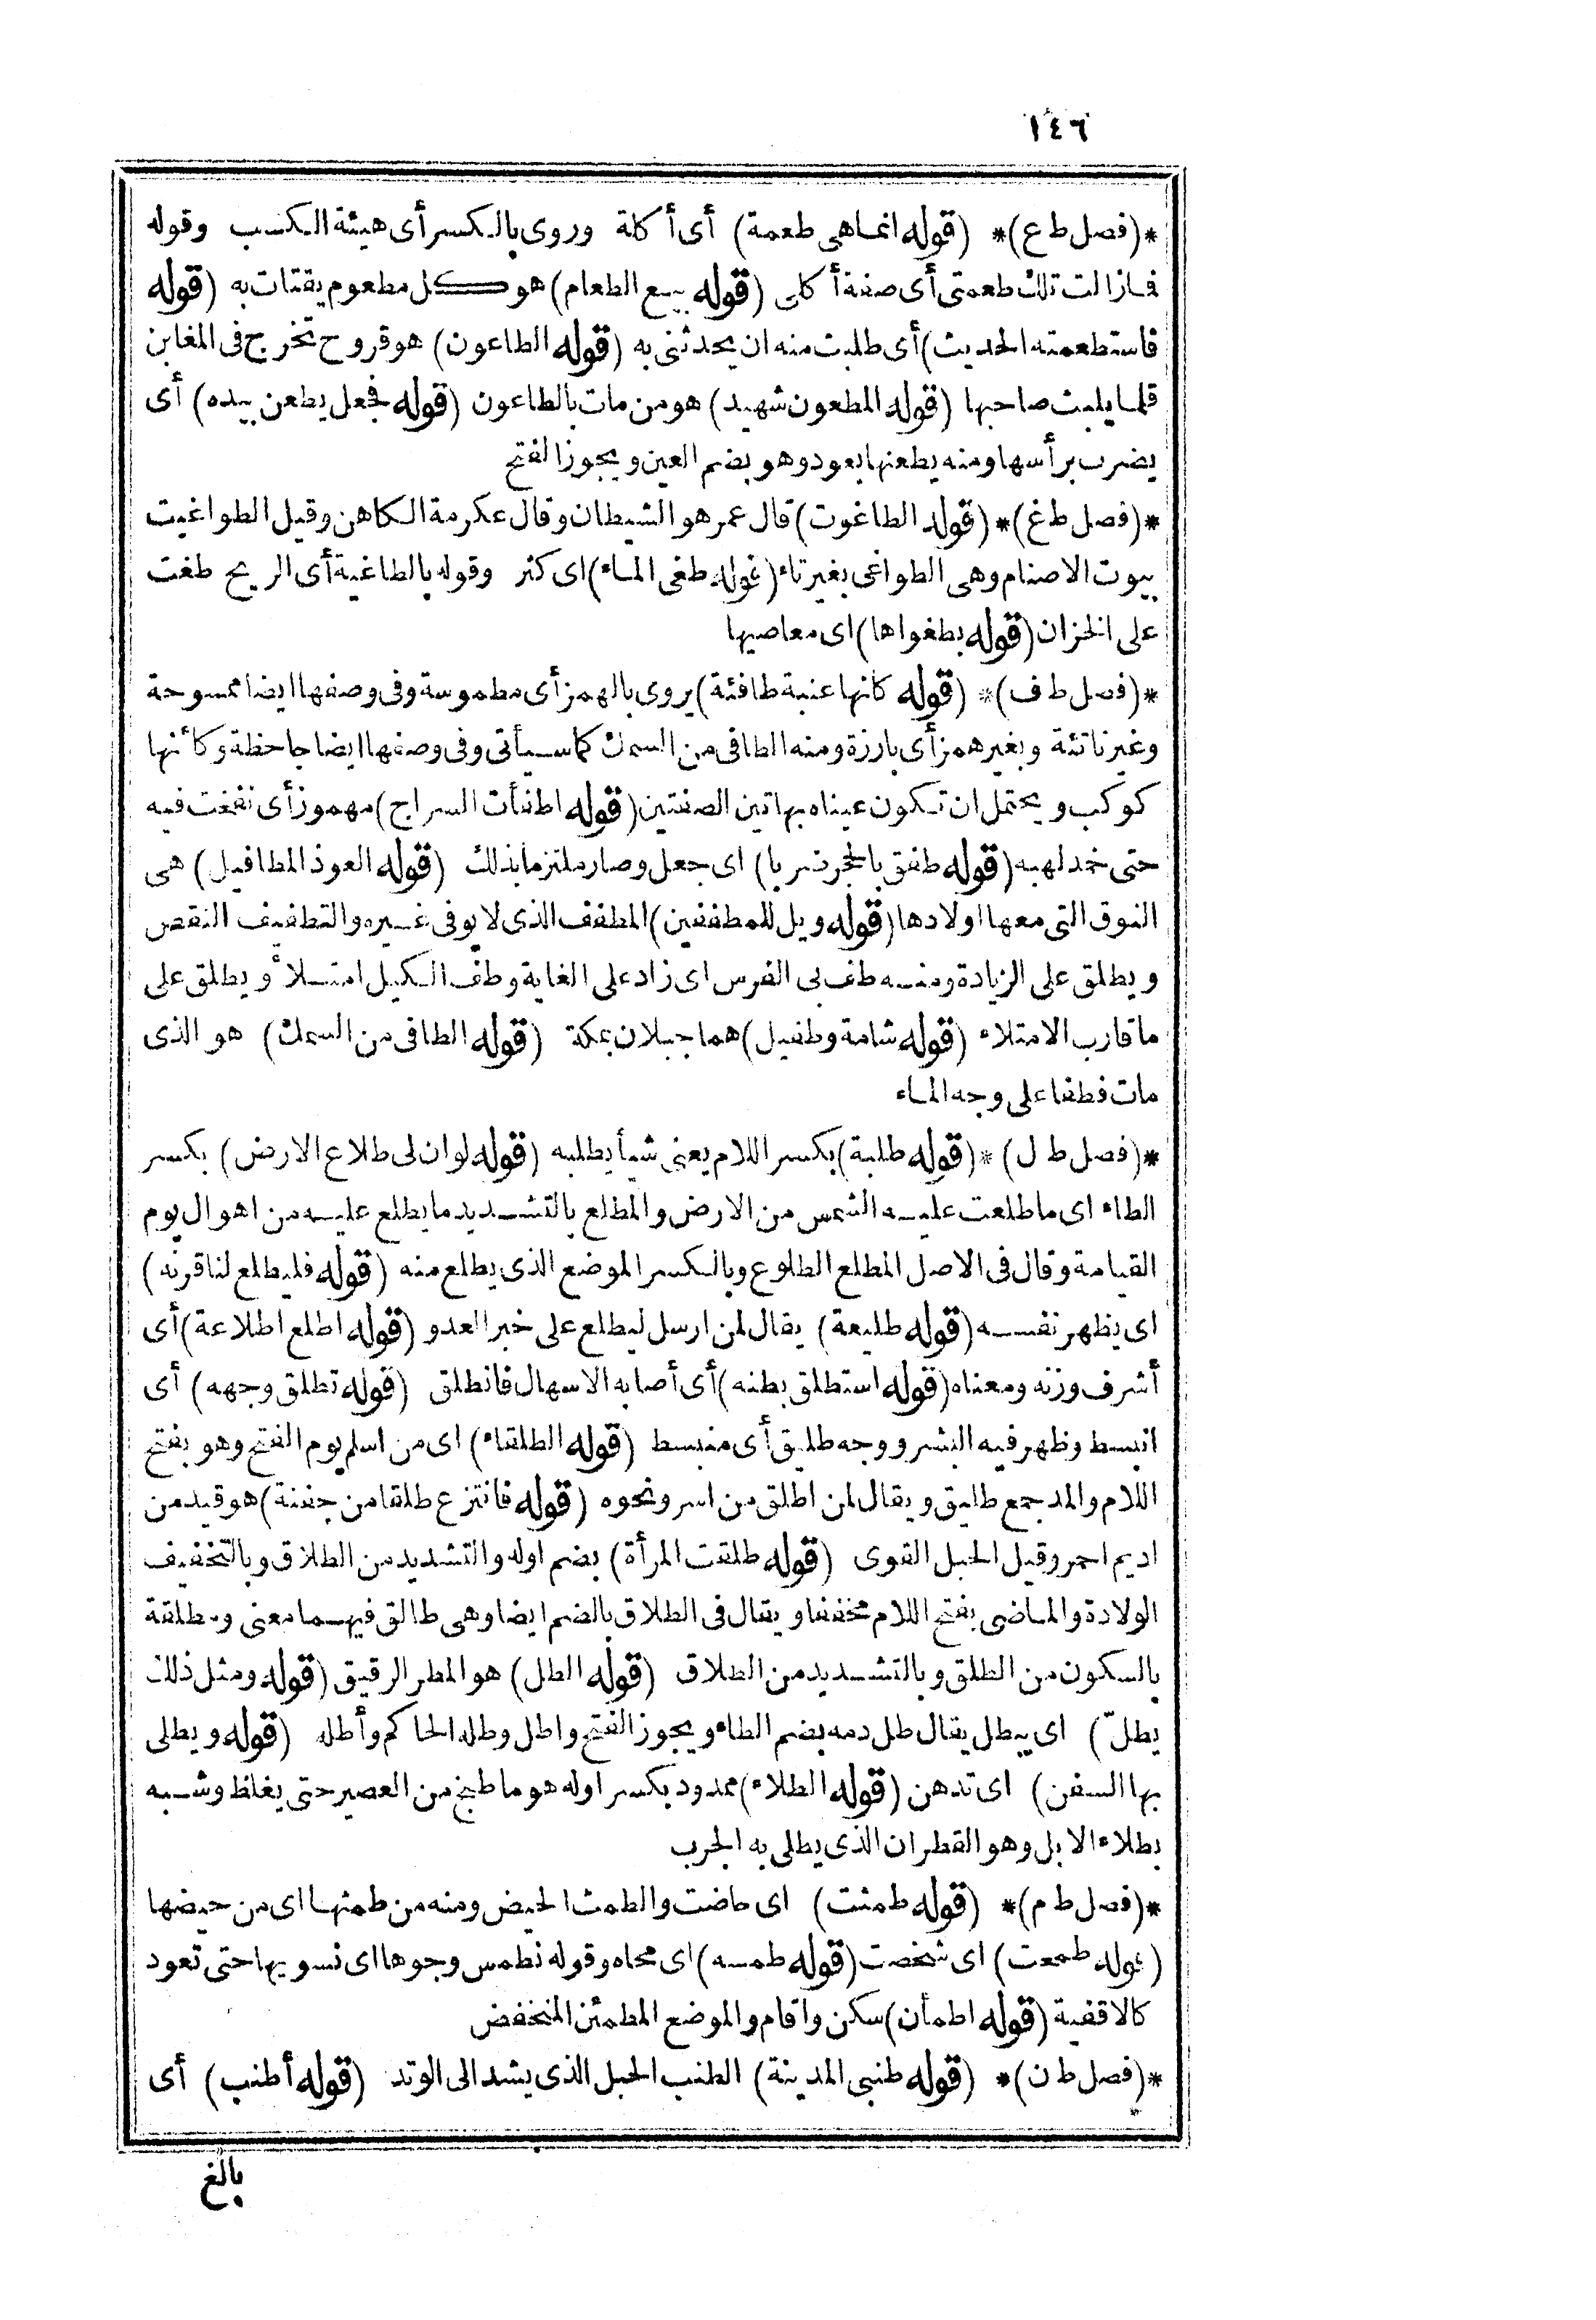 ١٤٦
*(فصل ط ع)* (قوله انماهى طعمة) أى أكلة وروى بالكسر أى هيئة الكسب وقوله
فمازالت تلك طعمتى أى صفة أكلى (قوله بيع الطعام) هو كل مطعوم يقتات به (قوله
فاستطعمته الحديث) أى طلبت منه ان يحدثنى به (قوله الطاعون) هو قروح تخرج فى المغابن
قلما يلبث صاحبها (قوله المطعون شهيد) هو من مات بالطاعون (قوله فجعل يطعن بيده) أى
يضرب برأسها ومنه يطعنها بعود وهو بضم العين ويجوز الفتح
*(فصل ط غ)* (قوله الطاغوت) قال عمر هو الشيطان وقال عكرمة الكاهن وقيل الطواغيت
بيوت الاصنام وهى الطواغى بغير تاء (قوله طغى الماء) اى كثر وقوله بالطاغية أى الريح طغت
على الخزان (قوله بطغواها) اى معاصيها
*(فصل ط ف)* (قوله كانها عنبة طافئة) يروى بالهمز أى مطموسة وفى وصفها ايضا ممسوحة
وغير ناتئة وبغير همز أى بارزة ومنه الطافى من السمك كماسيأتى وفى وصفها ايضا جاحظة وكأنها
كوكب ويحتمل ان تكون عيناه بهاتين الصفتين (قوله اطفأت السراج) مهموز أى نفخت فيه
حتى خمد لهبه (قوله طفق بالحجر ضربا) اى جعل وصار ملتزما بذلك (قوله العوذ المطافيل) هى
النوق التى معها اولادها (قوله ويل للمطففين) المطفف الذى لا يوفى غيره والتطفيف النقص
ويطلق على الزيادة ومنه طفف بى الفرس اى زاد على الغاية وطف الكيل امتلأ ويطلق على
ماقارب الامتلاء (قوله شامة وطفيل) هما جبلان بمكة (قوله الطافى من السمك) هو الذى
مات فطفا على وجه الماء
*(فصل ط ل)* (قوله طلبة) بكسر اللام يعنى شيأ يطلبه (قوله لو ان لى طلاع الارض) بكسر
الطاء اى ما طلعت عليه الشمس من الارض والمطلع بالتشديد ما يطلع عليه من اهوال يوم
القيامة وقال فى الاصل المطلع الطلوع وبالكسر الموضع الذى يطلع منه (قوله فليطلع لنا قرنه)
اى يظهر نفسه (قوله طليعة) يقال لمن ارسل ليطلع على خبر العدو (قوله اطلع اطلاعة) أى
أشرف وزنه ومعناه (قوله استطلق بطنه) أى أصابه الاسهال فانطلق (قوله تطلق وجهه) أى
انبسط وظهر فيه البشر ووجه طليق أى منبسط (قوله الطلقاء) اى من اسلم يوم الفتح وهو بفتح
اللام والمد جمع طليق ويقال لمن اطلق من اسر ونحوه (قوله فانتزع طلقا من جفنة) هو قيد من
اديم احمر وقيل الحبل القوى (قوله طلقت المرأة) بضم اوله والتشديد من الطلاق وبالتخفيف
الولادة والماضى بفتح اللام مخففا ويقال فى الطلاق بالضم ايضا وهى طالق فيهما معنى ومطلقة
بالسكون من الطلق وبالتشديد من الطلاق (قوله الطل) هو المطر الرقيق (قوله ومثل ذلك
يطلّ) اى يبطل يقال طل دمه بضم الطاء ويجوز الفتح واطل وطله الحاكم وأطله (قوله ويطلى
بها السفن) اى تدهن (قوله الطلاء) ممدود بكسر اوله هو ما طبخ من العصير حتى يغلظ وشبه
بطلاء الابل وهو القطران الذى يطلى به الجرب
*(فصل ط م)* (قوله طمثت) اى حاضت والطمث الحيض ومنه من طمثها اى من حيضها
(قوله طمحت) اى شخصت (قوله طمسه) اى محاه وقوله نطمس وجوها اى نسويها حتى تعود
كالاقفية (قوله اطمأن) سكن واقام والموضع المطمئن المنخفض
*(فصل ط ن)* (قوله طنبى المدينة) الطنب الحبل الذى يشد الى الوتد (قوله أطنب) أى
بالغ